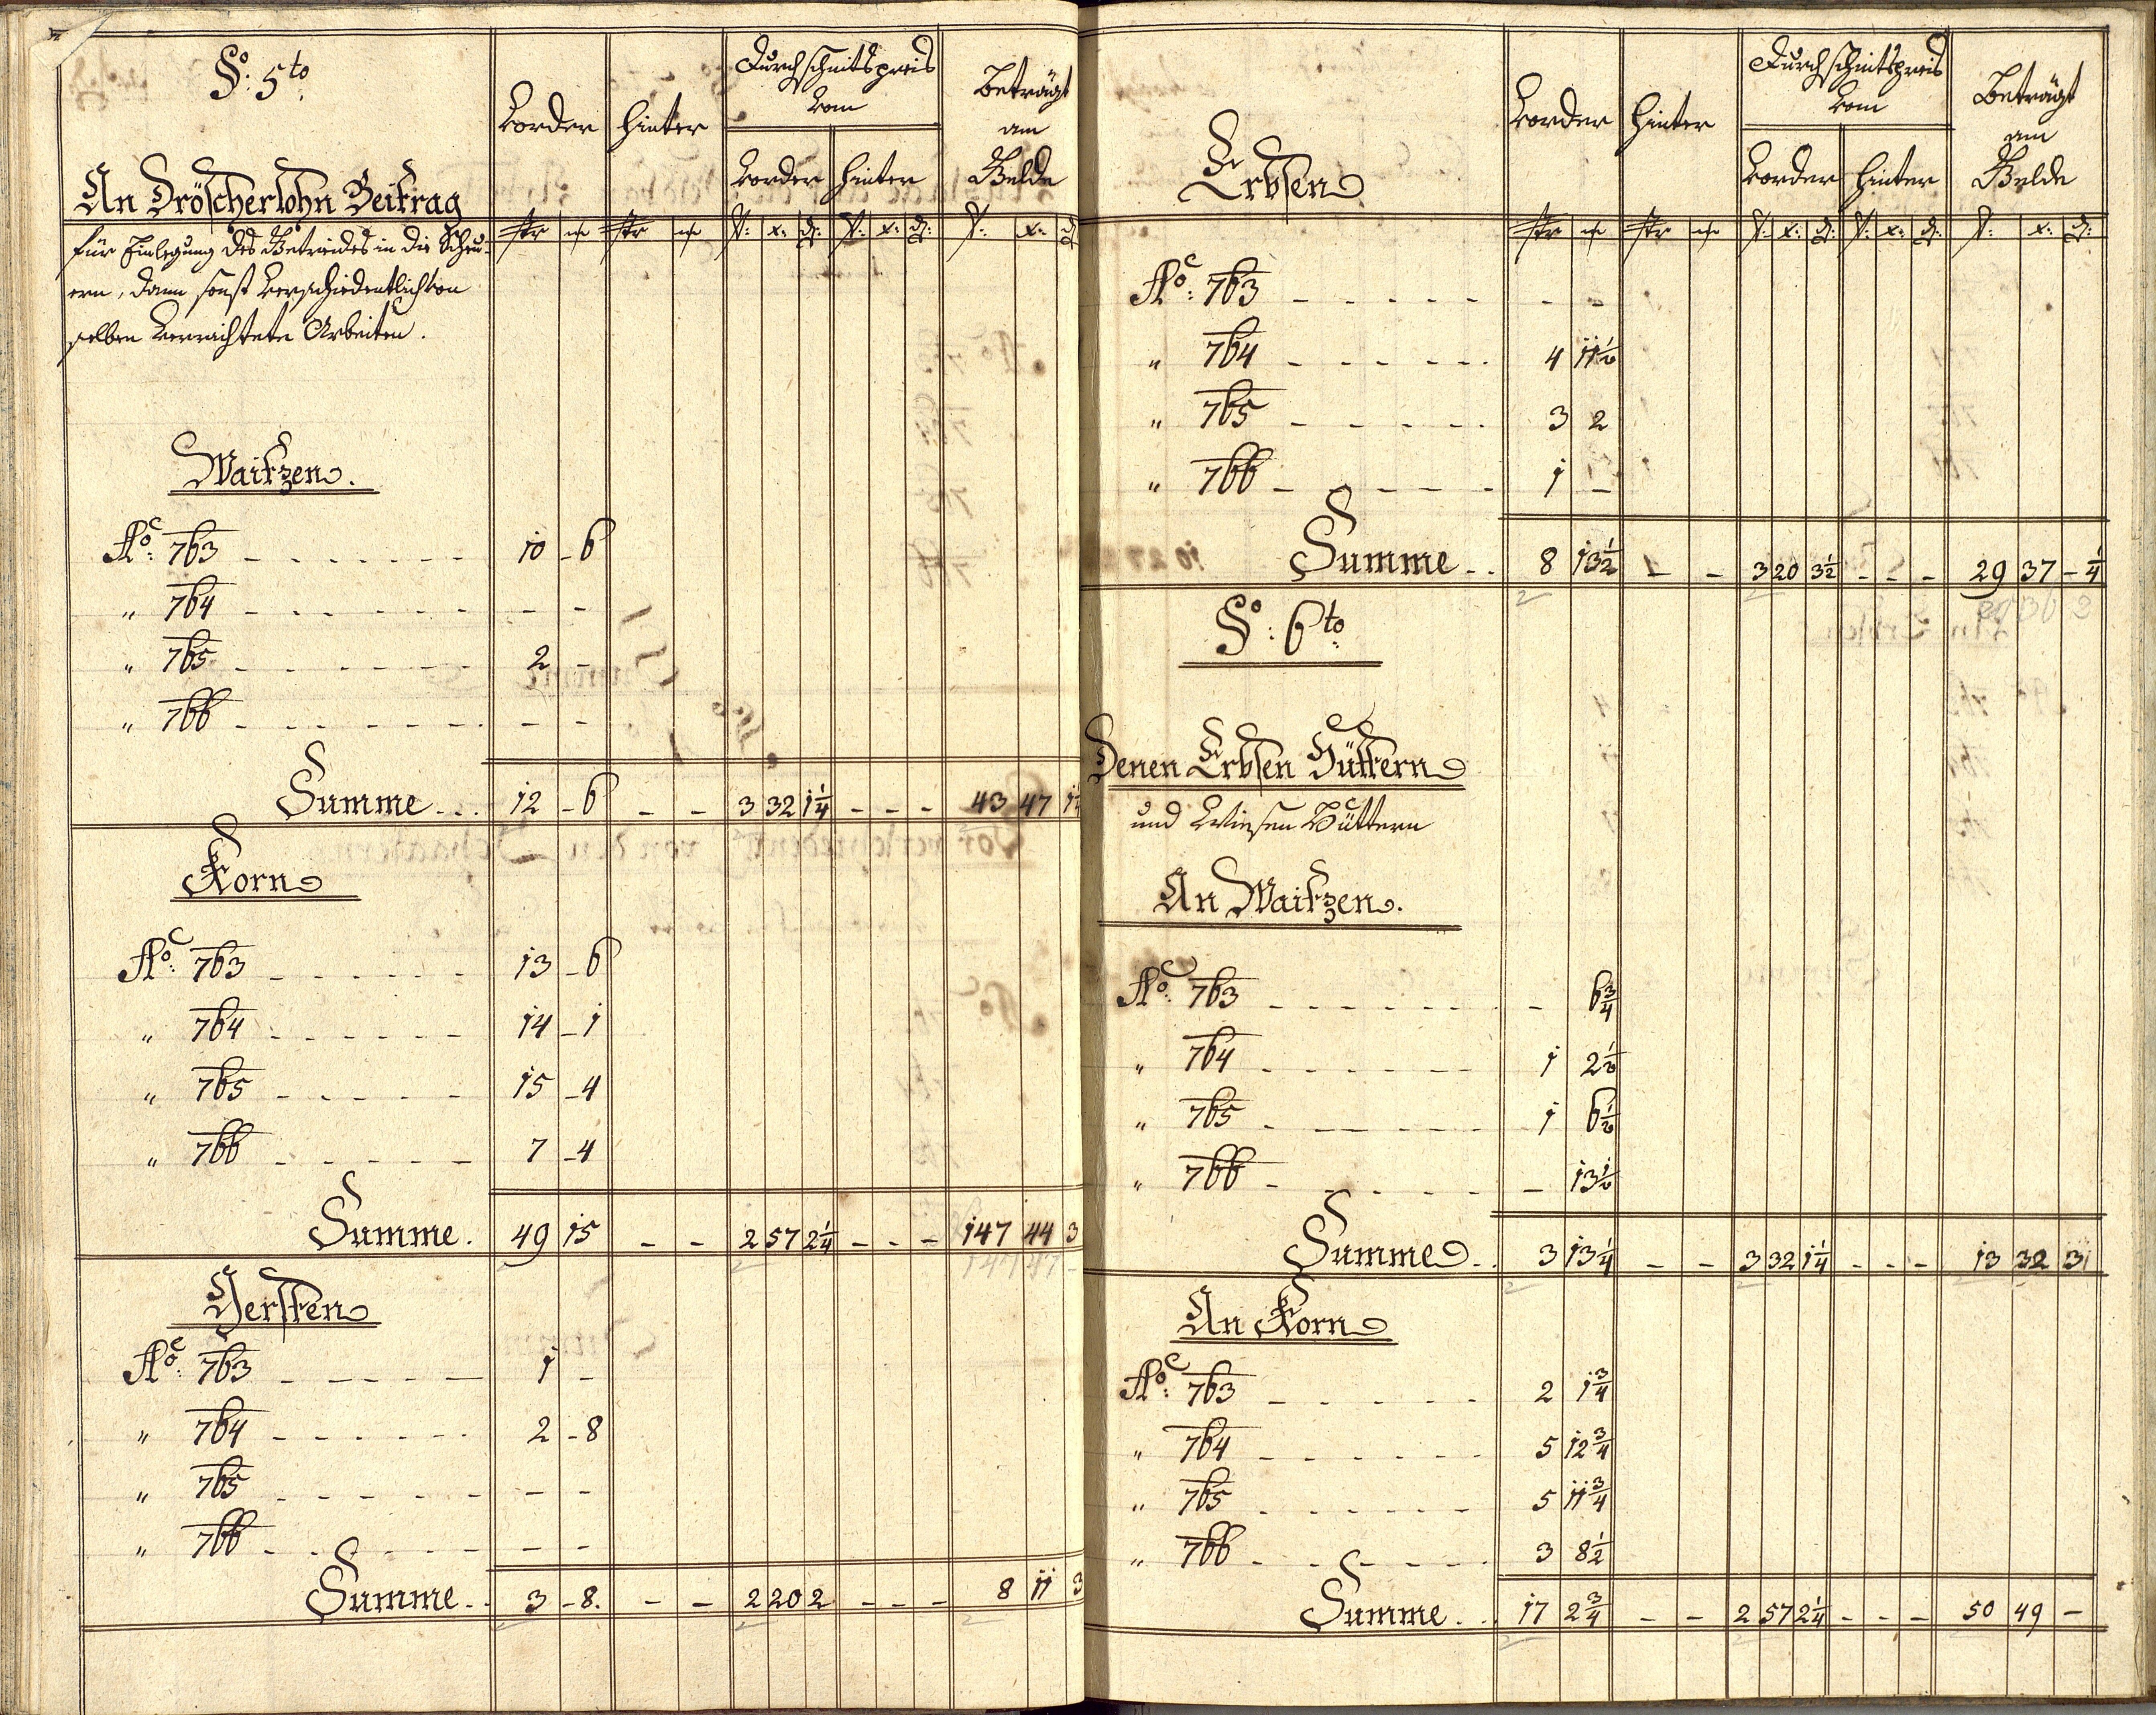 §o: 5to
Vorder
Hinter
Durchschnittspreis
vom
Vorder Hinter
Beträgt
am
Gelde
An Dröscherlohn Beitrag
Str
Str
f: x: d: f: x: d: f: x: d
für Einlegung des Getraides in die Scheu-
ern, dann sonst verschiedentlich von
selben verrichtete Arbeiten.
Waitzen.
Ao: 763 10 - 6
" 764 - -
" 765 2 -
" 766 - -
Summe 12 - 6 - - 3 32 1 1/4 - - - 43 47
Korn
Ao: 763 13 - 6
" 764 14 - 1
" 765 15 - 4
" 766 7 - 4
Summe. 49 15 - - 2 57 2 1/4 - - - 147 44 3
147 47 -
Gersten
Ao: 763 1 -
" 764 2 - 8
" 765 - -
" 766 - -
Summe 3 - 8. - - 2 20 2 - - - 8 11 3
Erbsen
Vorder
Hinter
Durchschnittspreis
vom
Vorder Hinter
Beträgt
am
Gelde
Str
Str
f: x: d: f: x: d: f: x: d:
Ao: 763 - -
" 764 4 11 1/2
" 765 3 2
" 766 1 -
Summe 8 13 1/2 - - 3 20 3 1/2 - - - 29 37 - 1/4
29 36 2
§o: 6to
Denen Erbsen Hüttern
und Wiesen Hüttern
An Waitzen.
Ao: 763 - 6 3/4
" 764 1 2 1/2
" 765 1 6 1/2
" 766 - 13 1/2
Summe 3 13 1/4 - - 3 32 1 1/4 - - - 13 32 3
An Korn
Ao: 763 2 1 3/4
" 764 5 12 3/4
" 765 5 11 3/4
" 766 3 8 1/2
Summe 17 2 3/4 - - 2 57 2 1/4 - - - 50 49 -